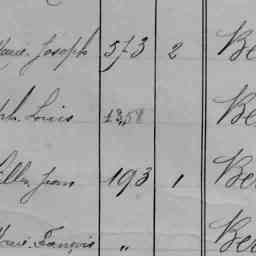 Joseph 573 2 Be
ph. Louis 1358 Be
Jean 193 1 Be
François " Be